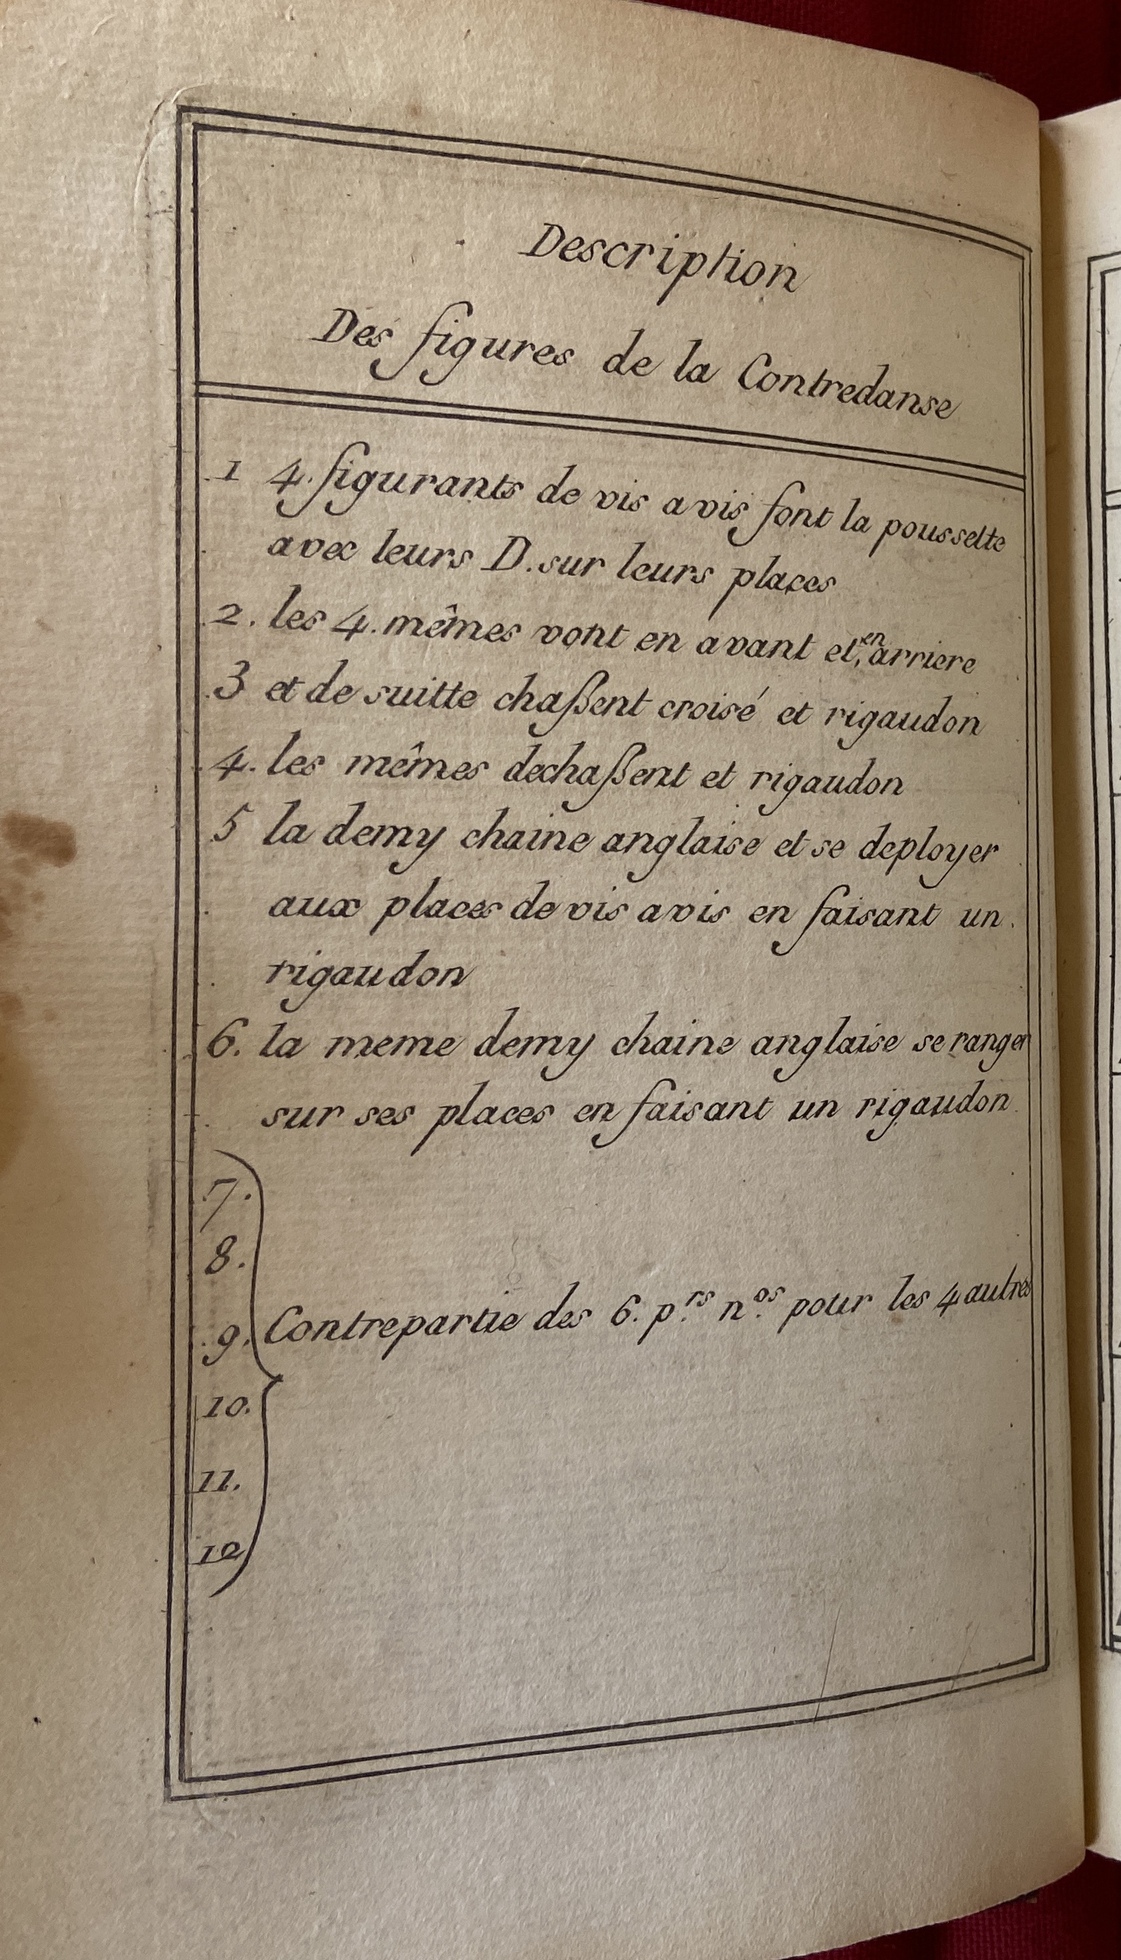 Description
Des figures de la Contredanse
1 4. figurants de vis a vis font la poussette
avec leurs D. sur leurs places
2. les 4. mêmes vont en avant et en arriere
3 et de suitte chaßent croisé et rigaudon
4. les mêmes dechaßent et rigaudon
5 la demy chaine anglaise et se deployer
aux places de vis a vis en faisant un
rigaudon
6. la meme demy chaine anglaise se ranger
sur ses places en faisant un rigaudon
7.
8.
9. Contrepartie des 6. p.rs n.os pour les 4 autres
10.
11.
12